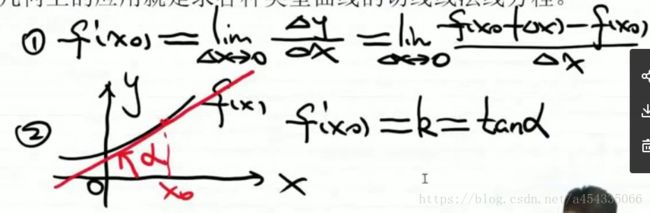 几何上的应用就是求各种类型曲线的切线法线方程。
① f'(x₀) = lim Δx→0 Δy/Δx = lim Δx→0 (f(x₀+Δx)-f(x₀))/Δx
② y f(x) f'(x₀) = k = tanα
α
0 x₀ x
https://blog.csdn.net/a454335066